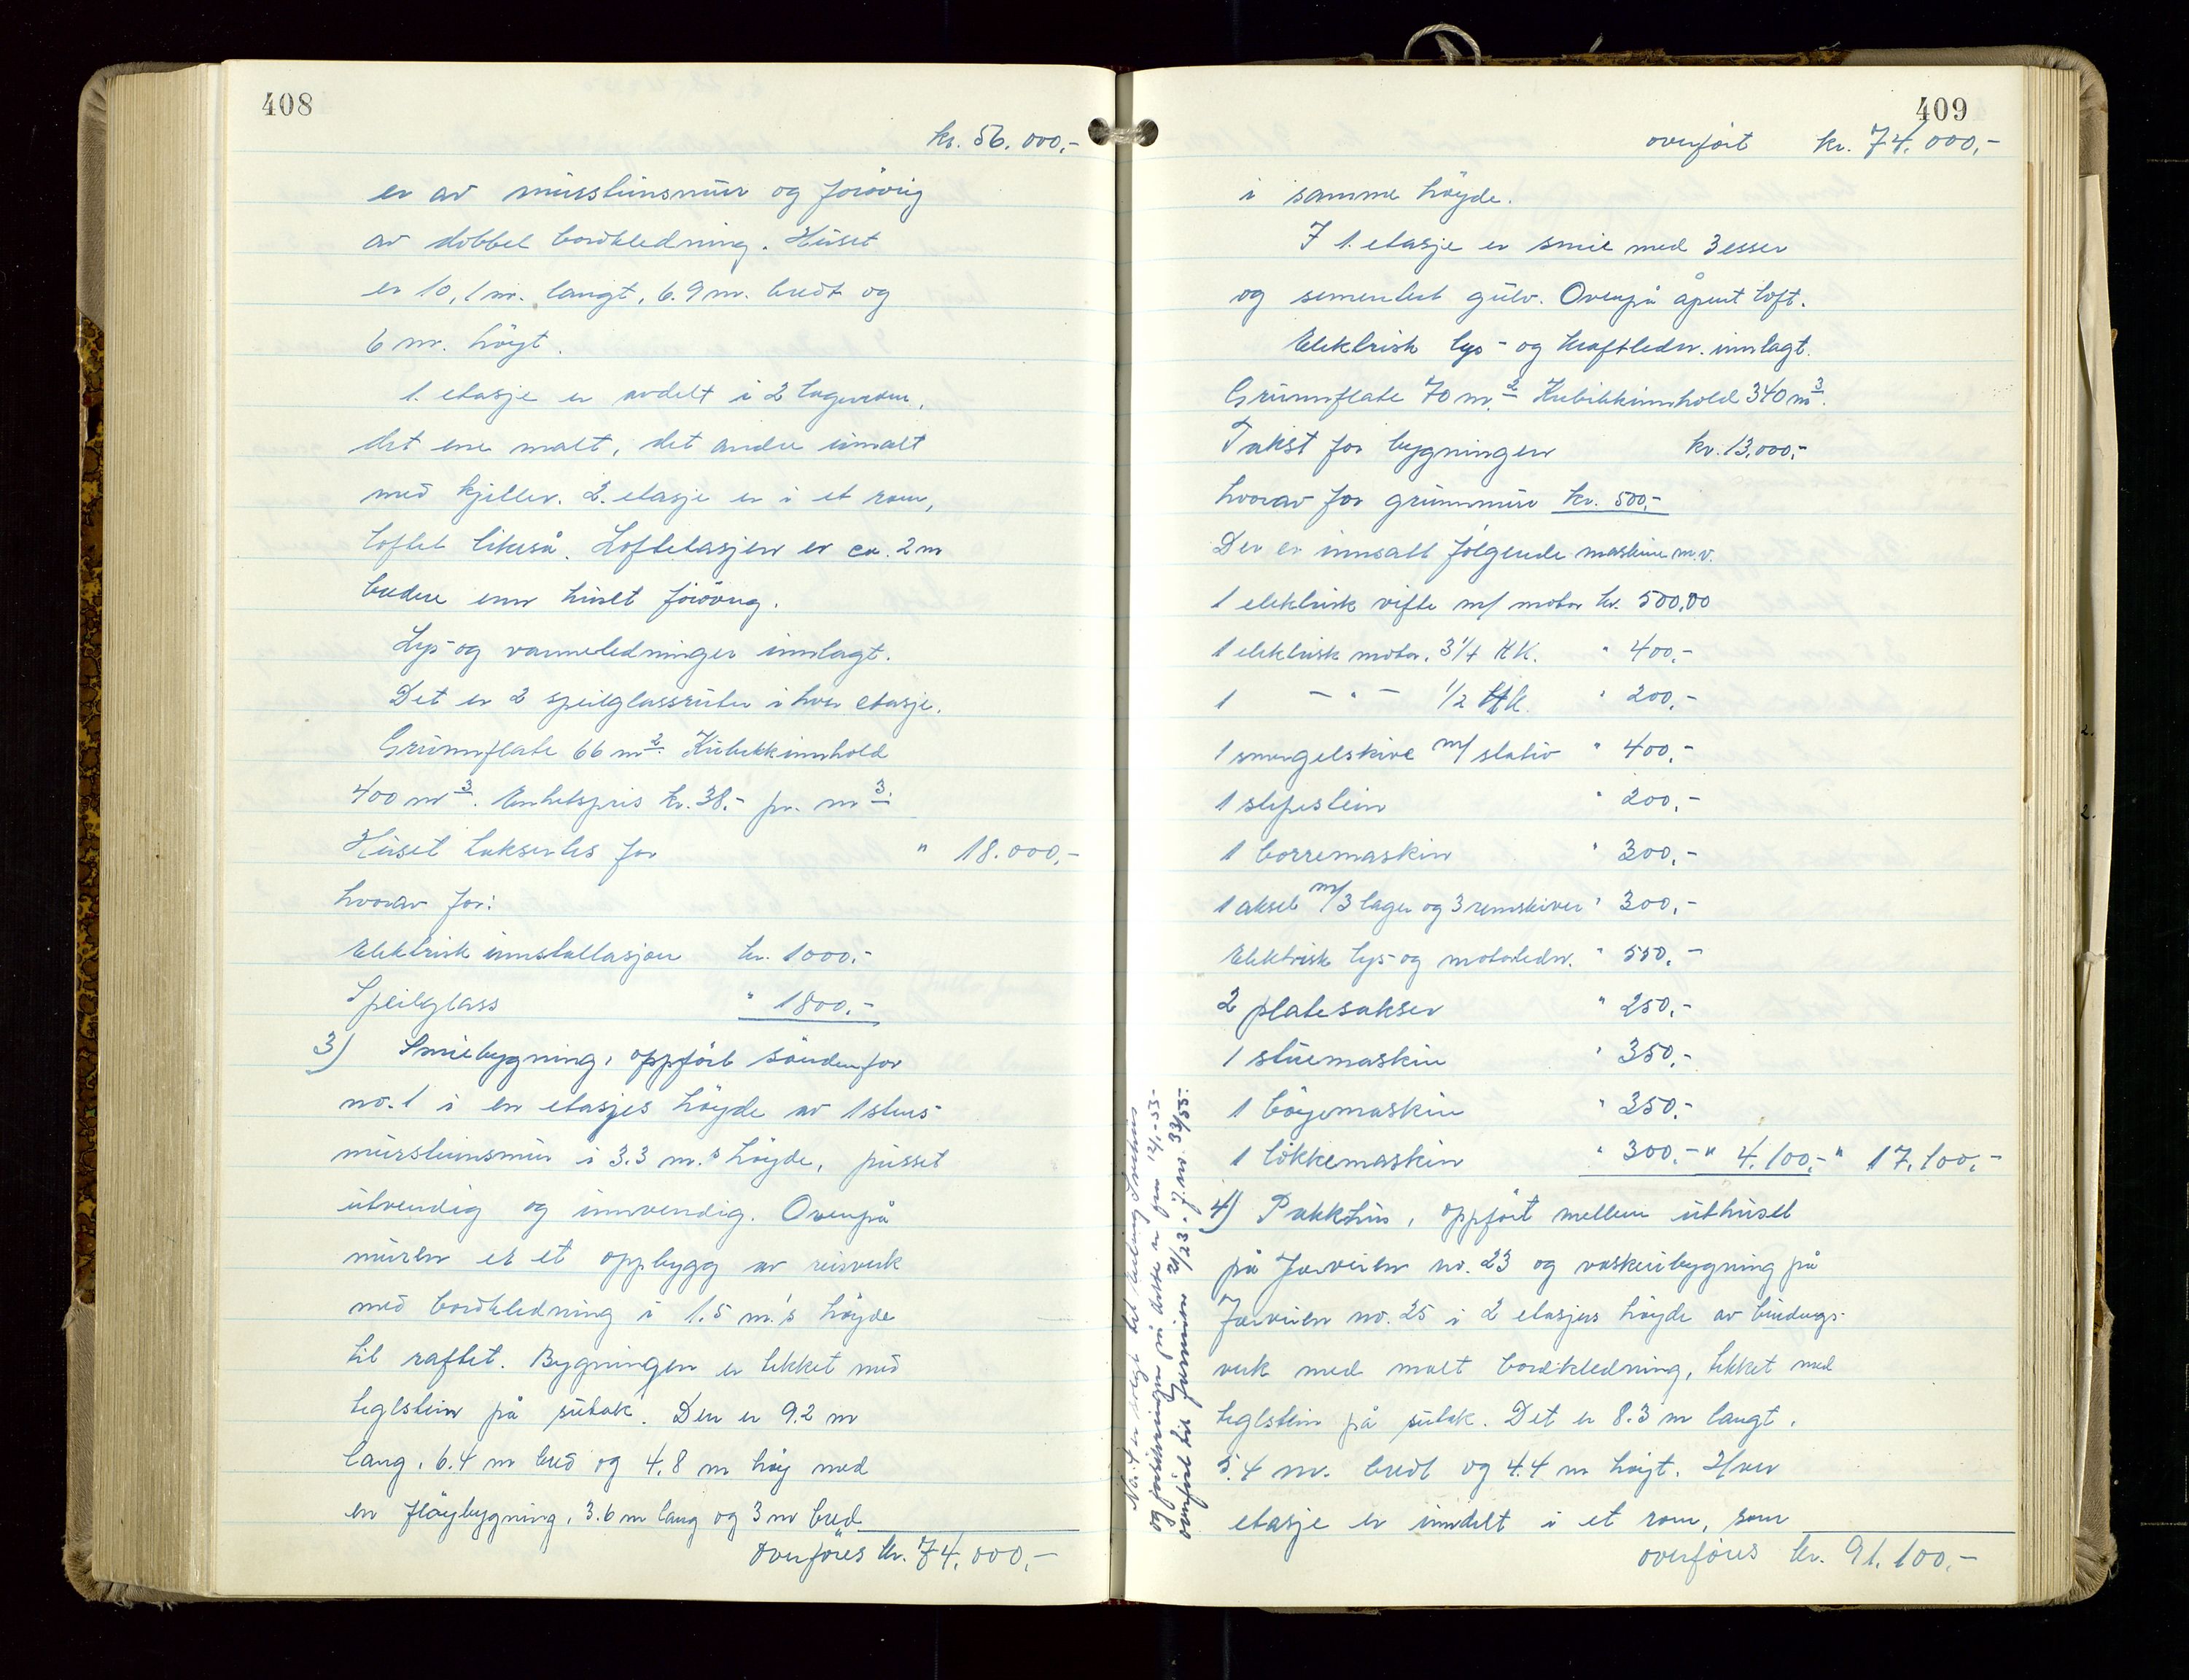 408
kr. 56.000,-
er av murstensmur og forövrig
av dobbel bordkledning. Huset
er 10,1 m. langt, 6.9 m. bredt og
6 m. höyt.
1. etasje er avdelt i 2 lagerrom,
det ene malt, det andre umalt
med kjeller. 2. etasje er i et rom,
loftet likeså. Loftetasjen er ca. 2 m
bredere enn huset forövrig.
Lys- og varmeledninger innlagt.
Det er 2 speilglassruter i hver etasje.
Grunnflate 66 m2. Kubikkinnhold
400 m3. Enhetspris kr. 38,- pr. m3.
Huset takseres for " 18.000,-
hvorav for:
Elektrisk innstallasjon kr. 1000,-
Speilglass " 1800,-
3) Smiebygning, oppfört söndenfor
no. 1 i en etasjes höyde av 1 stens
murstensmur i 3.3 m.s höyde, pusset
utvendig og innvendig. Ovenpå
muren er et oppbygg av reisverk
med bordkledning i 1.5 m.'s höyde
til raftet. Bygningen er tekket med
teglstein på sutak. Den er 9.2 m
lang, 6.4 m bred og 4,8 m höy med
en flöybygning, 3.6 m lang og 3 m bred
overföres kr. 74.000,-
409
overfört kr. 74.000,-
i samme höyde.
I 1. etasje er smie med 3 esser
og sementert gulv. Ovenpå åpent loft.
Elektrisk lys- og kraftledn. innlagt.
Grunnflate 70 m2. Kubikkinnhold 340 m3.
Takst for bygningen kr. 13.000,-
hvorav for grunnmur kr. 500,-
Der er innsatt fölgende maskiner m.v.
1 elektrisk vifte m/ motor kr. 500,00
1 elektrisk motor, 3 1/4 HK. " 400,-
1 - " - 1/2 HK. " 200,-
1 smergelskive m/ stativ " 400,-
1 slipestein " 200,-
1 borremaskin " 300,-
1 aksel m/ 3 lager og 3 remskiver " 300,-
Elektrisk lys- og motorledn. " 550,-
2 platesakser " 250,-
1 stuemaskin " 350,-
1 böyemaskin " 350,-
1 lokkemaskin " 300,- " 4.100,- " 17.100,-
4) Pakkhus, oppfört mellem uthuset
på Jærveien no. 23 og vaskeribygning på
Jærveien no. 25 i 2 etasjers höyde av bindings-
verk med malt bordkledning, tekket med
teglstein på sutak. Det er 8.3 m langt,
5.4 m. bredt og 4.4 m höyt. Hver
etasje er inndelt i et rom, som
overföres kr. 91.100,-
No. 4 er solgt til
og forsikringen på dette er fra 12/1-53
overfört til